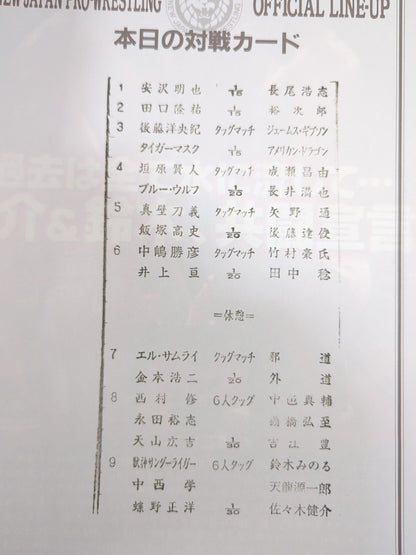 NEW JAPAN PRO-WRESTLING OFFICIAL LINE-UP
本日の対戦カード
1 安沢明也 1/15 長尾浩志
2 田口隆祐 1/15 裕次郎
3 後藤洋央紀 タッグマッチ ジェームス・ギブソン
タイガーマスク 1/15 アメリカン・ドラゴン
4 垣原賢人 タッグマッチ 成瀬昌由
ブルー・ウルフ 1/20 長井満也
5 真壁刀義 タッグマッチ 矢野通
飯塚高史 1/20 後藤達俊
6 中嶋勝彦 タッグマッチ 竹村豪氏
井上亘 1/20 田中稔
=休憩=
7 エル・サムライ タッグマッチ 邪道
金本浩二 1/20 外道
8 西村修 6人タッグ 中邑真輔
永田裕志 棚橋弘至
天山広吉 1/30 吉江豊
9 獣神サンダーライガー 6人タッグ 鈴木みのる
中西学 天龍源一郎
蝶野正洋 1/30 佐々木健介